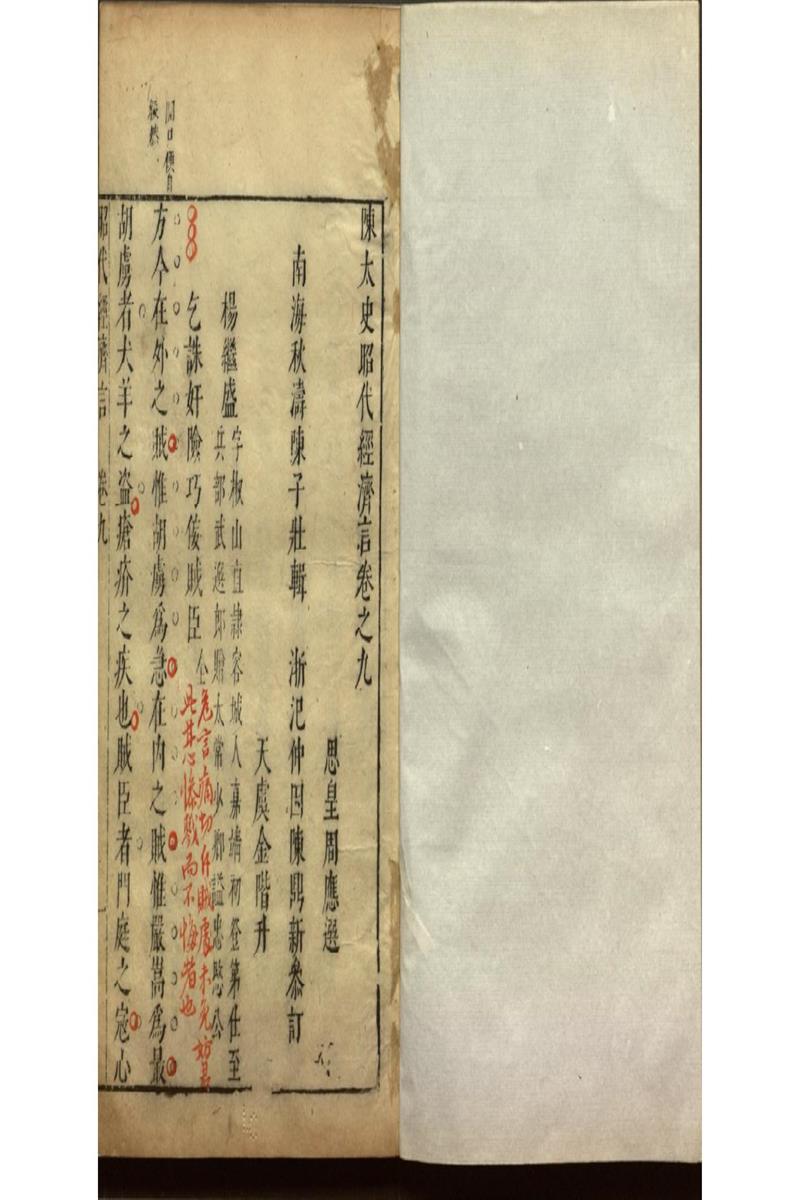 陳太史昭代經濟言卷之九
思皇周應選
南海秋濤陳子壯輯　浙汜仲因陳鼎新叅訂
天虞金階升
楊繼盛
字椒山直隸容城人嘉靖初登第仕至
兵部武選郎贈太常少卿謚忠愍公
乞誅奸險巧佞賊臣
危言痛切斥賊處未免
此其心慘戮而不悔者也
開口便自
方今在外之賊惟胡虜爲急在内之賊惟嚴嵩爲最
胡虜者犬羊之盜瘡疥之疾也賊臣者門庭之寇心
昭代經濟言　卷九　一